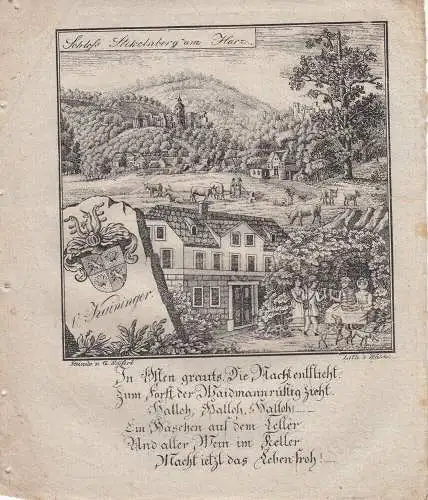 Schloß Stekelnberg am Harz.
v. Kuininger.
G. Seifert
Lith. v.
In Osten grauts, Die Nacht entflicht.
Zum Forst der Waidmann rüstig zieht
Halloh, Halloh, Halloh!
Ein Häschen auf dem Teller
Und aller Wein im Keller
Macht jetzt das Leben froh!